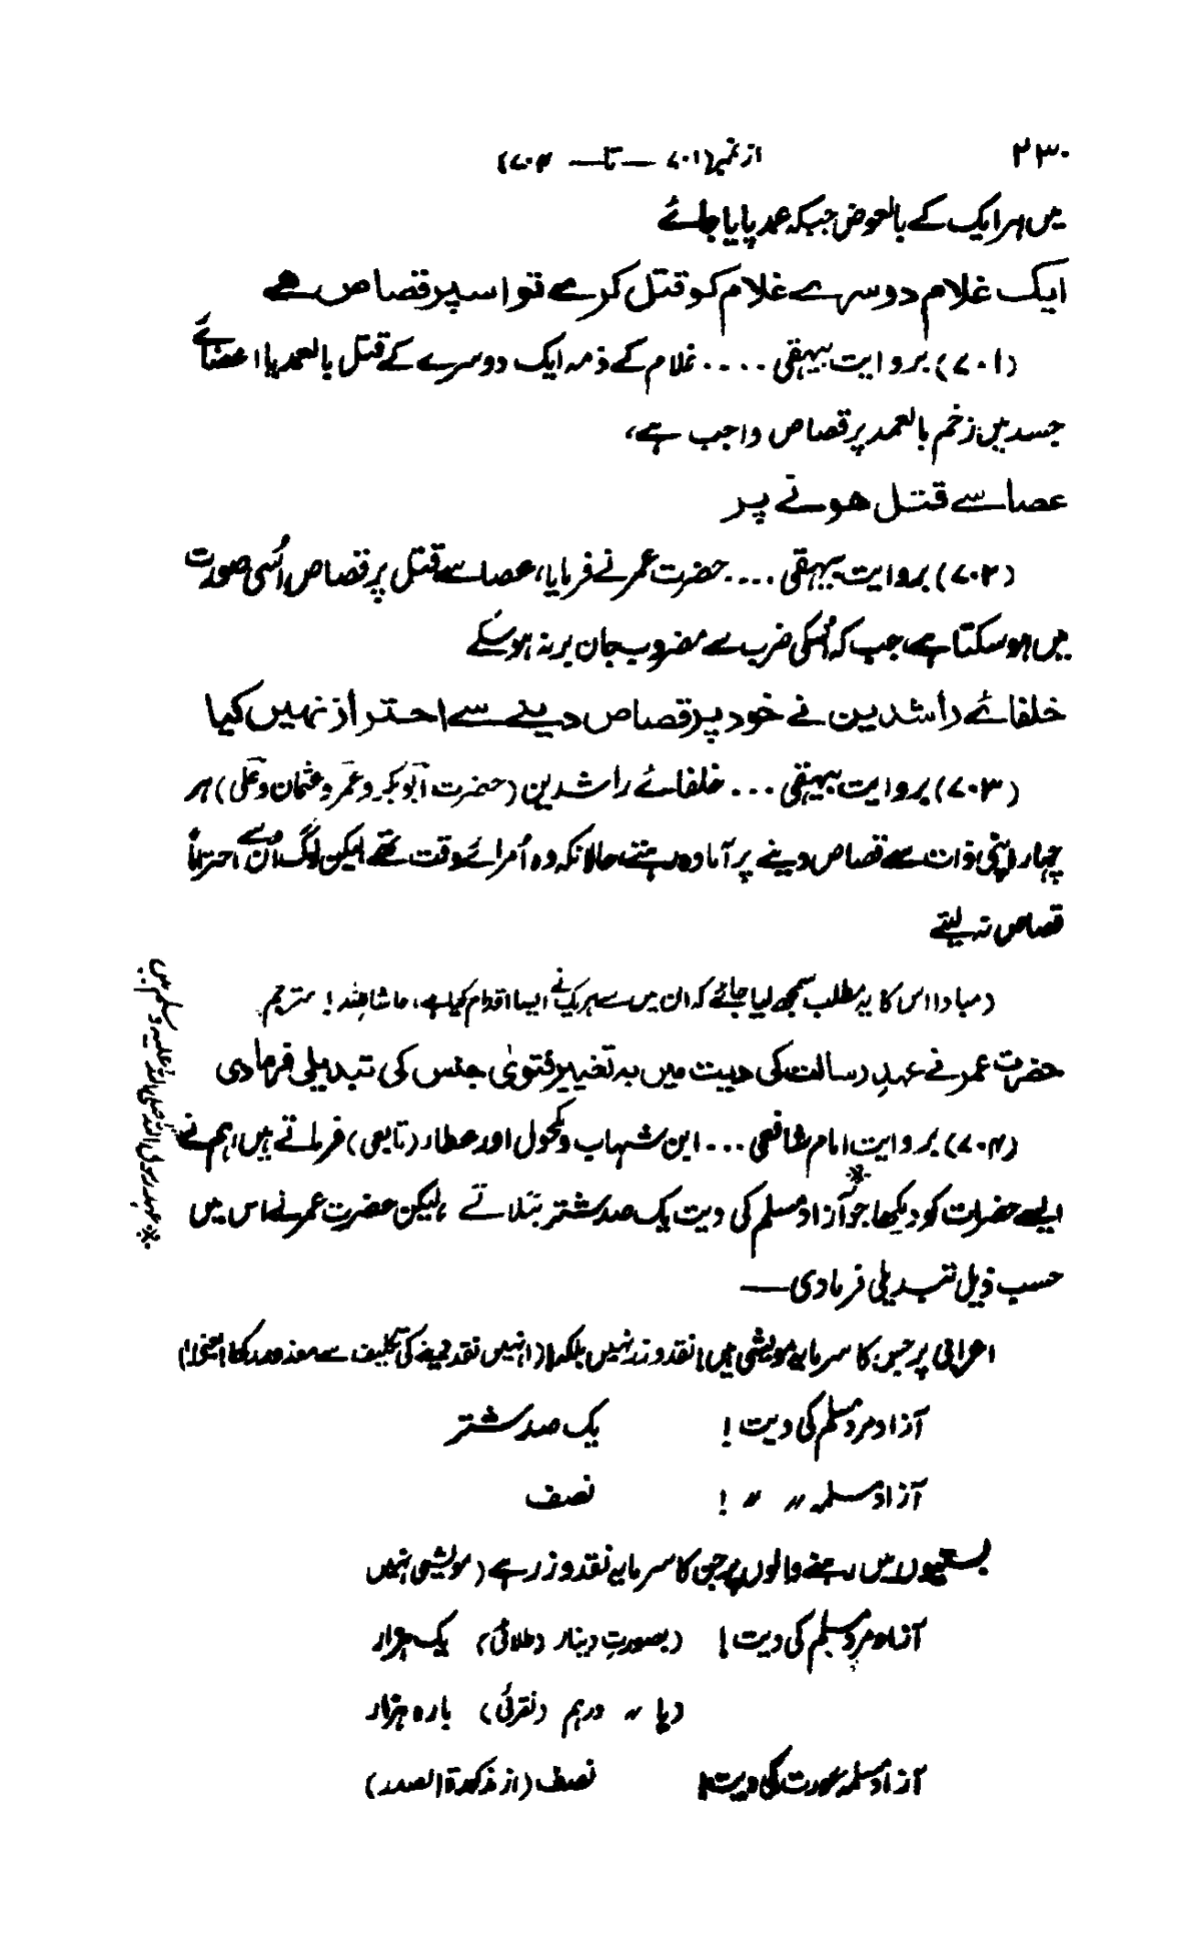 ۲۳۰
از نمبر (۷۰۱ — تا — ۷۰۴)
میں ہر ایک کے بالعوض جبکہ عمد پایا جائے
ایک غلام دوسرے غلام کو قتل کرے تو اس پر قصاص ہے
(۷۰۱) بروایت بیہقی .... غلام کے ذمہ ایک دوسرے کے قتل بالعمد یا اعضائے
جسد میں زخم بالعمد پر قصاص واجب ہے،
عصا سے قتل ہونے پر
(۷۰۲) بروایت بیہقی .... حضرت عمر نے فرمایا، عصا سے قتل پر قصاص اُسی صورت
میں ہو سکتا ہے جب کہ اُسکی ضرب سے مضروب جان بر نہ ہو سکے
خلفائے راشدین نے خود پر قصاص دینے سے احتراز نہیں کیا
(۷۰۳) بروایت بیہقی ... خلفائے راشدین (حضرت ابوبکر و عمر و عثمان و علی) ہر
چہار اپنی ذات سے قصاص دینے پر آمادہ رہتے حالانکہ وہ اُمرائے وقت تھے لیکن لوگ اُن سے احتراماً
قصاص نہ لیتے
(مبادا اس کا یہ مطلب سمجھ لیا جائے کہ ان میں سے ہر یک نے ایسا اقدام کیا ہے، حاشا للہ! مترجم
حضرت عمر نے عہدِ رسالت کی دیت میں بہ تغییر فتویٰ جنس کی تبدیلی فرمادی
(۷۰۴) بروایت امام شافعی ... ابن شہاب و مکحول اور عطار (تابعی) فرماتے ہیں، ہم نے
ایسے حضرات کو دیکھا جو* آزاد مسلم کی دیت یک صد شتر بتلاتے، لیکن حضرت عمر نے اس میں
حسب ذیل تبدیلی فرمادی —
اعرابی پر جن کا سرمایہ مویشی ہیں! نقد و زر نہیں بلکہ! (انہیں نقد دینے کی تکلیف سے معذور رکھا یعنی!)
آزاد مرد مسلم کی دیت ! یک صد شتر
آزاد مسلمہ 〃 〃 ! نصف
بستیوں میں رہنے والوں پر جن کا سرمایہ نقد و زر ہے (مویشی نہیں
آزاد مرد مسلم کی دیت! (بصورتِ دینار (طلائی) یک ہزار
(یا 〃 درہم (نقرئی) بارہ ہزار
آزاد مسلمہ عورت کی دیت! نصف (از مذکورۃ الصدر)
* عہد رسول اللہ صلی اللہ علیہ وسلم میں